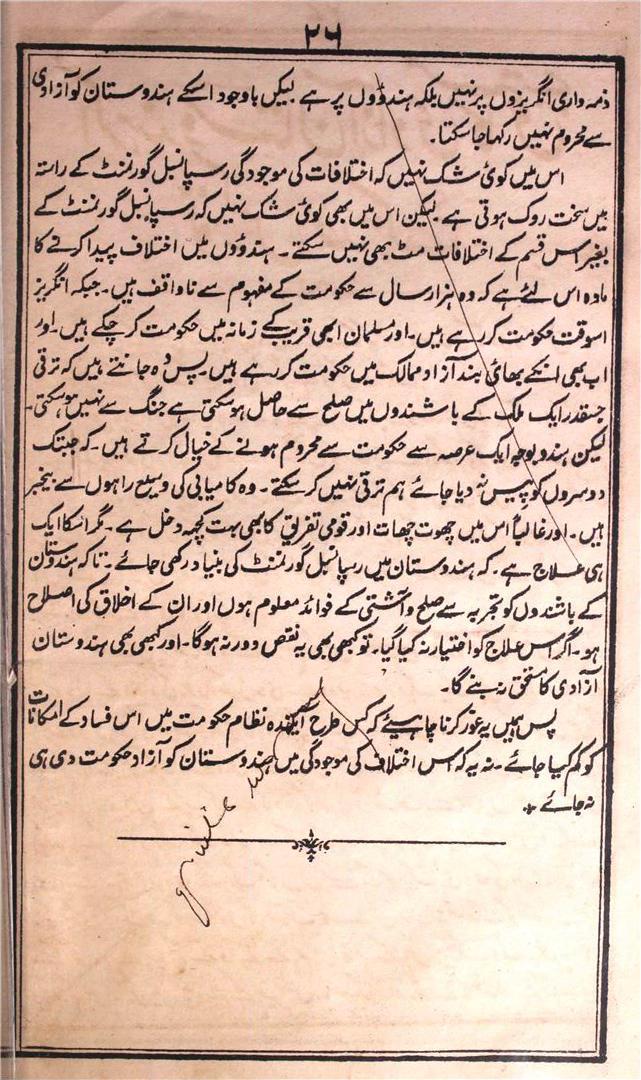 ۲۶
ذمہ داری انگریزوں پر نہیں بلکہ ہندوؤں پر ہے لیکن باوجود اسکے ہندوستان کو آزادی
سے محروم نہیں رکھا جا سکتا۔
اس میں کوئی شک نہیں کہ اختلافات کی موجودگی رسپانسبل گورنمنٹ کے راستہ
میں سخت روک ہوتی ہے لیکن اس میں بھی کوئی شک نہیں کہ رسپانسبل گورنمنٹ کے
بغیر اس قسم کے اختلافات مٹ بھی نہیں سکتے۔ ہندوؤں میں اختلاف پیدا کرنے کا
مادہ اس لئے ہے کہ وہ ہزار سال سے حکومت کے مفہوم سے ناواقف ہیں۔ جبکہ انگریز
اسوقت حکومت کر رہے ہیں۔ اور مسلمان ابھی قریب کے زمانہ میں حکومت کر چکے ہیں۔ اور
اب بھی انکے بھائی بند آزاد ممالک میں حکومت کر رہے ہیں۔ پس وہ جانتے ہیں کہ ترقی
جسقدر ایک ملک کے باشندوں میں صلح سے حاصل ہو سکتی ہے جنگ سے نہیں ہو سکتی۔
لیکن ہندو بوجہ ایک عرصہ سے حکومت سے محروم ہونے کے خیال کرتے ہیں۔ کہ جبتک
دوسروں کو پیس نہ دیا جائے ہم ترقی نہیں کر سکتے۔ وہ کامیابی کی وسیع راہوں سے بیخبر
ہیں۔ اور غالباً اس میں چھوت چھات اور قومی تفریق کا بھی بہت کچھ دخل ہے۔ مگر اسکا ایک
ہی علاج ہے۔ کہ ہندوستان میں رسپانسبل گورنمنٹ کی بنیاد رکھی جائے۔ تاکہ ہندوستان
کے باشندوں کو تجربہ سے صلح و آشتی کے فوائد معلوم ہوں اور ان کے اخلاق کی اصلاح
ہو۔ اگر اس علاج کو اختیار نہ کیا گیا۔ تو کبھی بھی یہ نقص دور نہ ہوگا۔ اور کبھی بھی ہندوستان
آزادی کا مستحق نہ بنے گا۔
پس ہمیں یہ غور کرنا چاہیئے کہ کس طرح آئندہ نظام حکومت میں اس فساد کے امکانات
کو کم کیا جائے۔ نہ یہ کہ اس اختلاف کی موجودگی میں ہندوستان کو آزاد حکومت دی ہی
نہ جائے